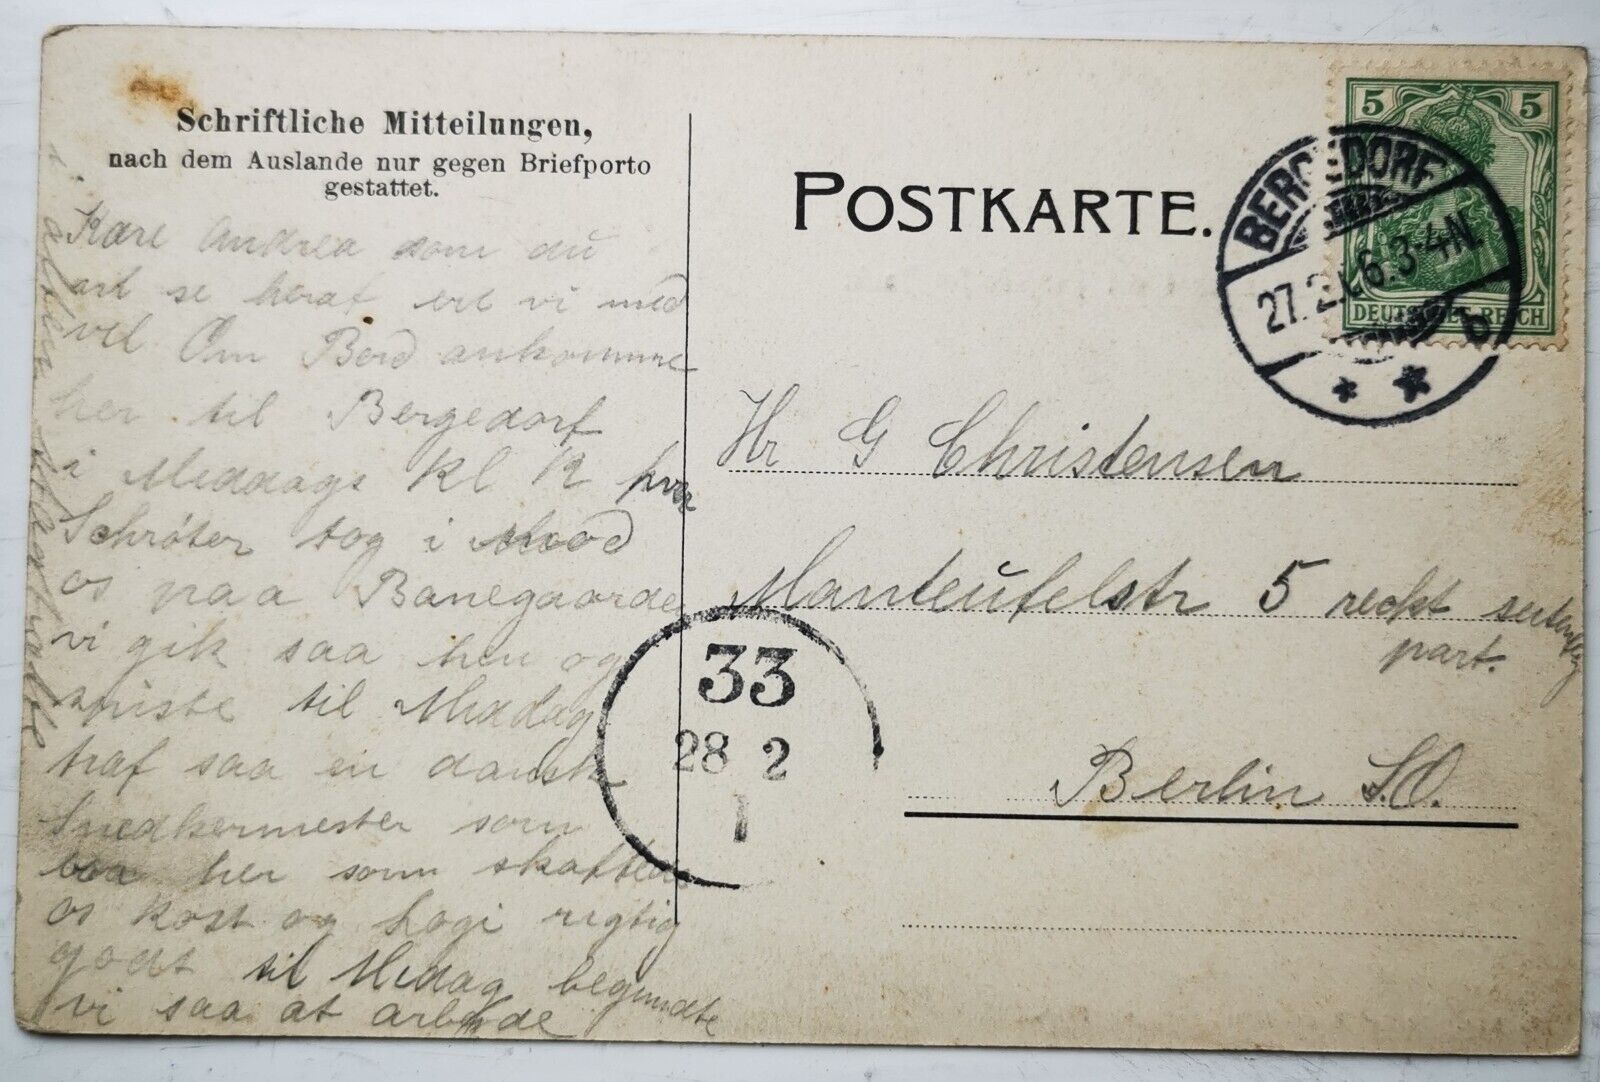 Schriftliche Mitteilungen,
nach dem Auslande nur gegen Briefporto
gestattet.
Kære Andrea som du
se heraf ert vi med
vel Om Bord ankomne
her til Bergedorf
i Meddags Kl 12
Schröter tog i Mood
os paa Banegaarde
vi gik saa hen og
spiste til Meddag
traf saa en dansk
Snedkermester som
boa her som skaffede
os kost og logi rigtig
godt til Medag begyndte
vi saa at arbejde
POSTKARTE.
5 5
DEUTSCHES REICH
BERGEDORF
27.2.06.3-4N.
b
* *
Hr G Christensen
Manteufelstr 5 recht
part.
Berlin S.O.
33
28 2
1